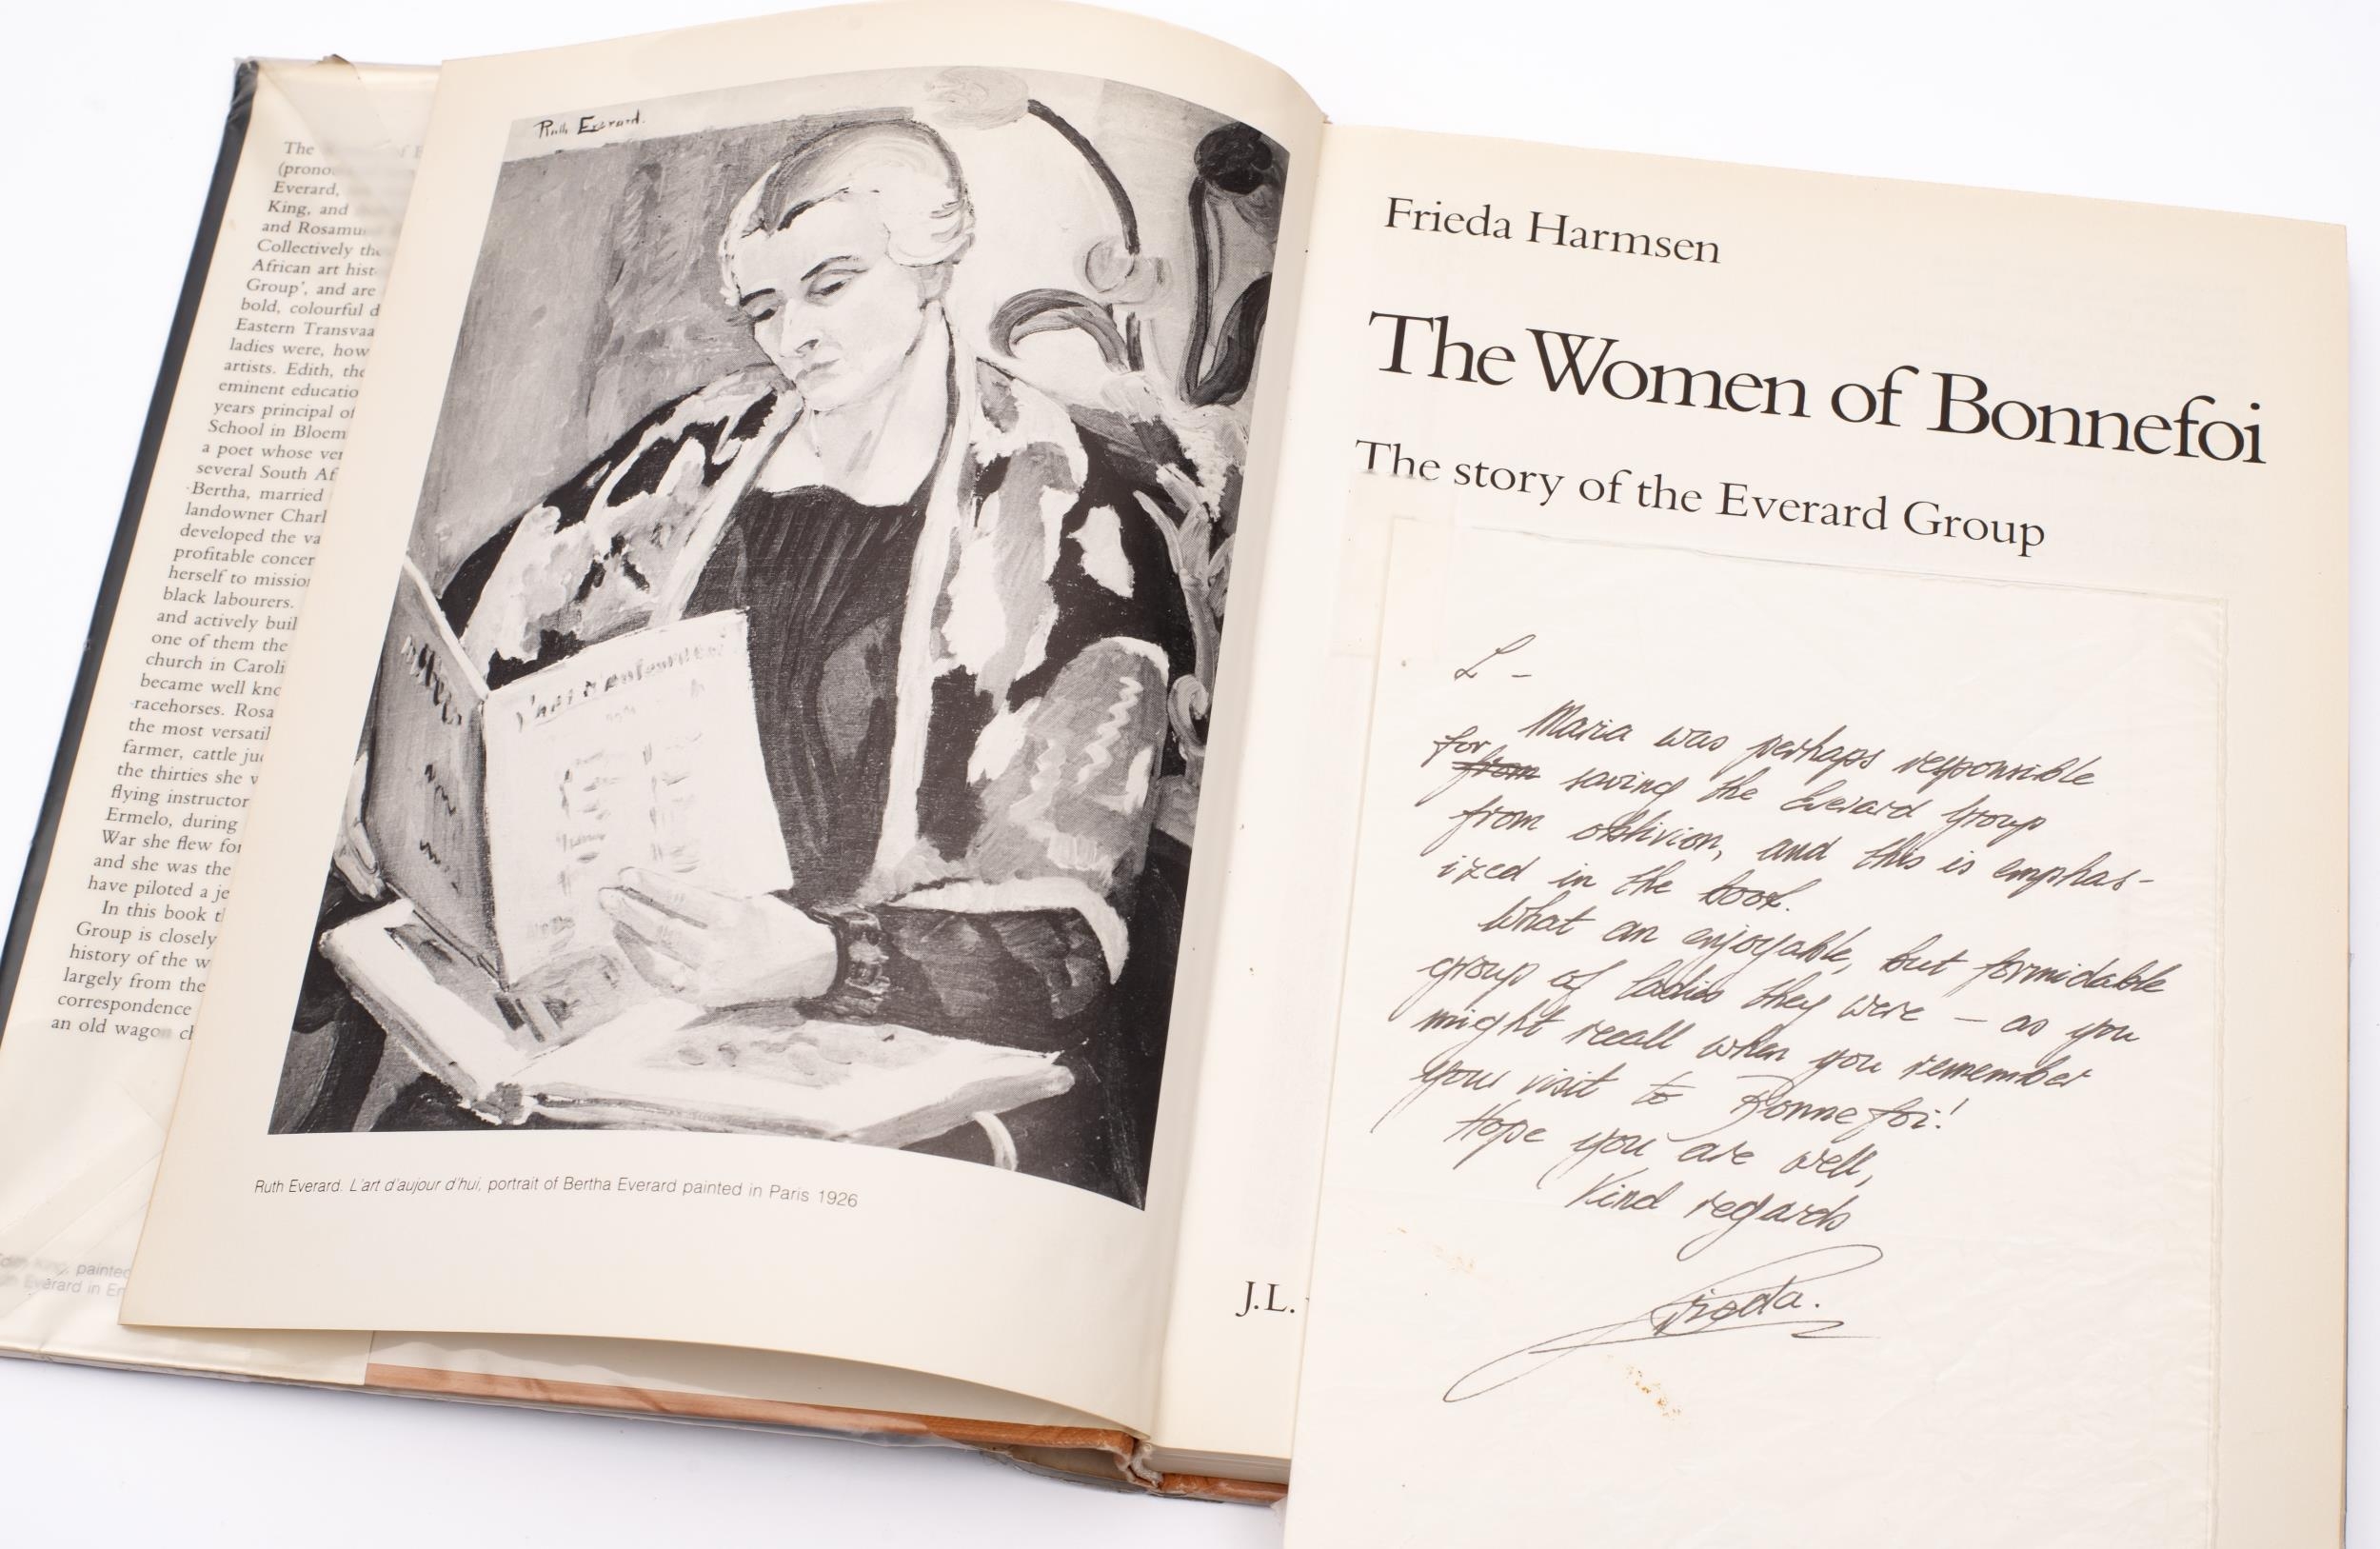 The of
(prono
Everard,
King, and
and Rosamu
Collectively the
African art hist
Group', and are
bold, colourful d
Eastern Transvaa
ladies were, how
artists. Edith, the
eminent educatio
years principal of
School in Bloem
a poet whose ver
several South Af
Bertha, married
landowner Charl
developed the va
profitable concer
herself to mission
black labourers.
and actively buil
one of them the
church in Caroli
became well kno
racehorses. Rosa
the most versatil
farmer, cattle ju
the thirties she v
flying instructor
Ermelo, during
War she flew for
and she was the
have piloted a je
In this book t
Group is closely
history of the w
largely from the
correspondence
an old wagon ch
King, painted
Everard in En
Ruth Everard.
Ruth Everard. L'art d'aujour d'hui, portrait of Bertha Everard painted in Paris 1926
Frieda Harmsen
The Women of Bonnefoi
The story of the Everard Group
J.L.
L –
Maria was perhaps responsible
for from saving the Everard Group
from oblivion, and this is emphas-
ized in the book.
What an enjoyable, but formidable
group of ladies they were – as you
might recall when you remember
your visit to Bonnefoi!
Hope you are well,
Kind regards
Frieda.